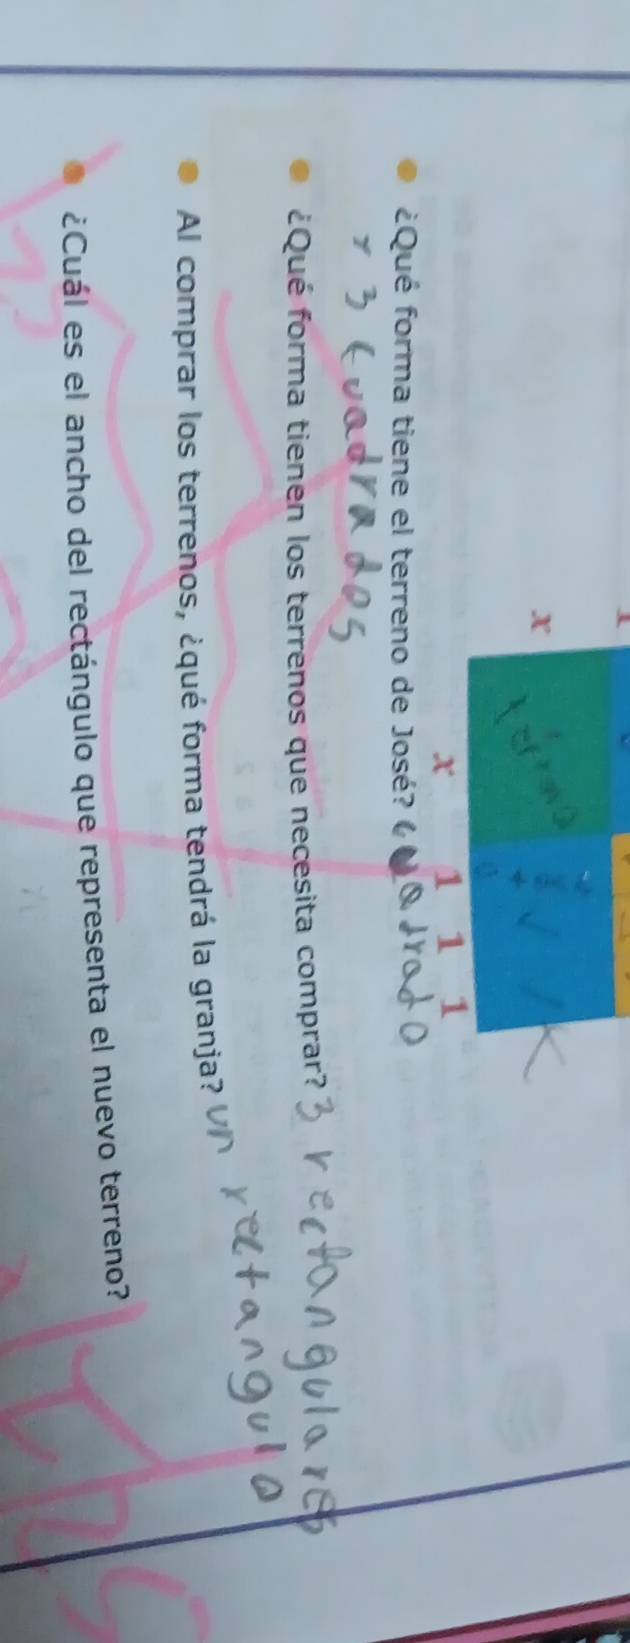 1
x
x 1 1 1
¿Qué forma tiene el terreno de José? cuadrado
¿Qué forma tienen los terrenos que necesita comprar? 3 rectangulares
y 3 cuadrados
Al comprar los terrenos, ¿qué forma tendrá la granja? un rectangulo
¿Cuál es el ancho del rectángulo que representa el nuevo terreno?